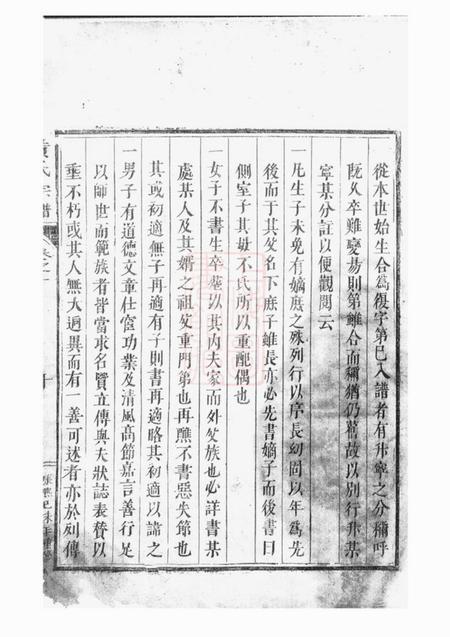 從本世始生合爲復字第已入譜者有升寧之分稱呼
既久卒難變易則第雖合而稱猶仍舊故以別行升某
寧某分註以便觀閱云
一凡生子未免有嫡庶之殊列行以序長幼固以年爲先
後而于其父名下庶子雖長亦必先書嫡子而後書曰
側室子其母不氏所以重配偶也
一女子不書生卒葬以其內夫家而外父族也必詳書某
處某人及其婿之祖父重門第也再醮不書惡失節也
其或初適無子再適有子則書再適略其初適以諱之
一男子有道德文章仕宦功業及清風高節嘉言善行足
以師世而範族者皆當求名賢立傳與夫狀誌表贊以
垂不朽或其人無大過異而有一善可述者亦於列傳
袁氏宗譜
卷之一
康熙己未年重